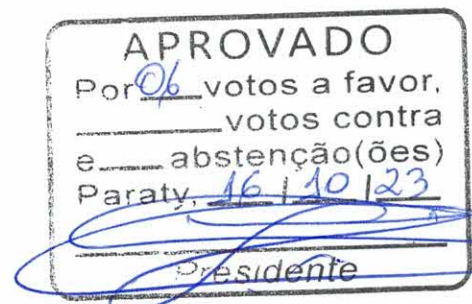 APROVADO
Por 06 votos a favor,
votos contra
e abstenção(ões)
Paraty, 16 / 10 / 23
Presidente